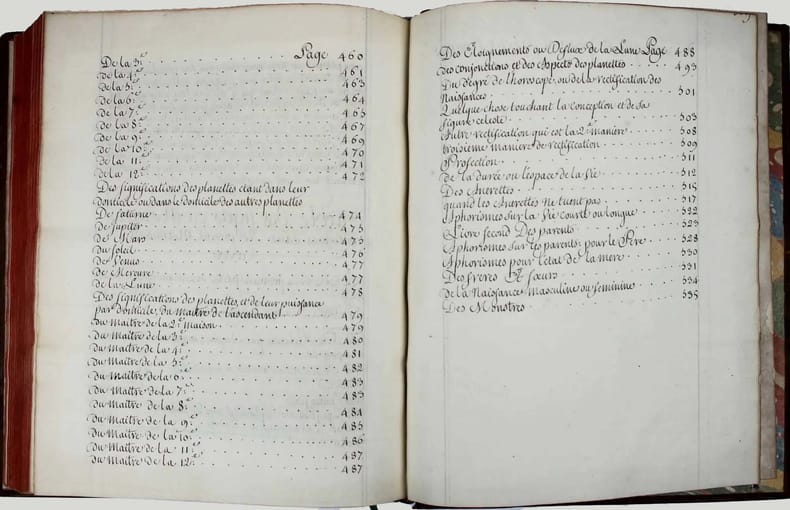 De la 3.e Page 460
De la 4.e 461
De la 5.e 463
De la 6.e 464
De la 7.e 465
De la 8.e 467
De la 9.e 469
De la 10.e 470
De la 11.e 471
De la 12.e 472
Des significations des planettes etant dans leur
domicile ou dans le domicile des autres planettes
De saturne 474
De jupiter 475
De Mars 475
Du soleil 476
De Venus 477
De Mercure 477
De la Lune 478
Des significations des planettes, et de leur puissance
par domicile, du maitre de l'ascendant 479
Du Maitre de la 2.e maison 479
Du Maitre de la 3.e 480
Du Maitre de la 4.e 481
Du Maitre de la 5.e 482
Du Maitre de la 6.e 483
Du Maitre de la 7.e 483
Du Maitre de la 8.e 484
Du Maitre de la 9.e 485
Du Maitre de la 10.e 486
Du Maitre de la 11.e 487
Du Maitre de la 12.e 487
Des Eloignements ou Deflux de la Lune Page 488
Des conjonctions et des Aspects des planettes 493
Du degré de lhoroscope, ou de la rectification des
Naissances 501
Quelque chose touchant la conception et de sa
figure celeste 503
Autre rectification qui est la 2.e maniere 508
troisieme maniere de rectification 509
Profection 511
De la durée ou l'espace de la Vie 512
Des Anerettes 515
quand les Anerettes ne tuent pas 517
Aphorismes sur la Vie courte ou longue 522
Livre second Des parents 523
Aphorismes sur les parents, pour le Pere 528
Aphorismes pour l'etat de la mere 530
Des freres Et sœurs 531
de la Naissance masculine ou feminine 534
Des Monstres 535